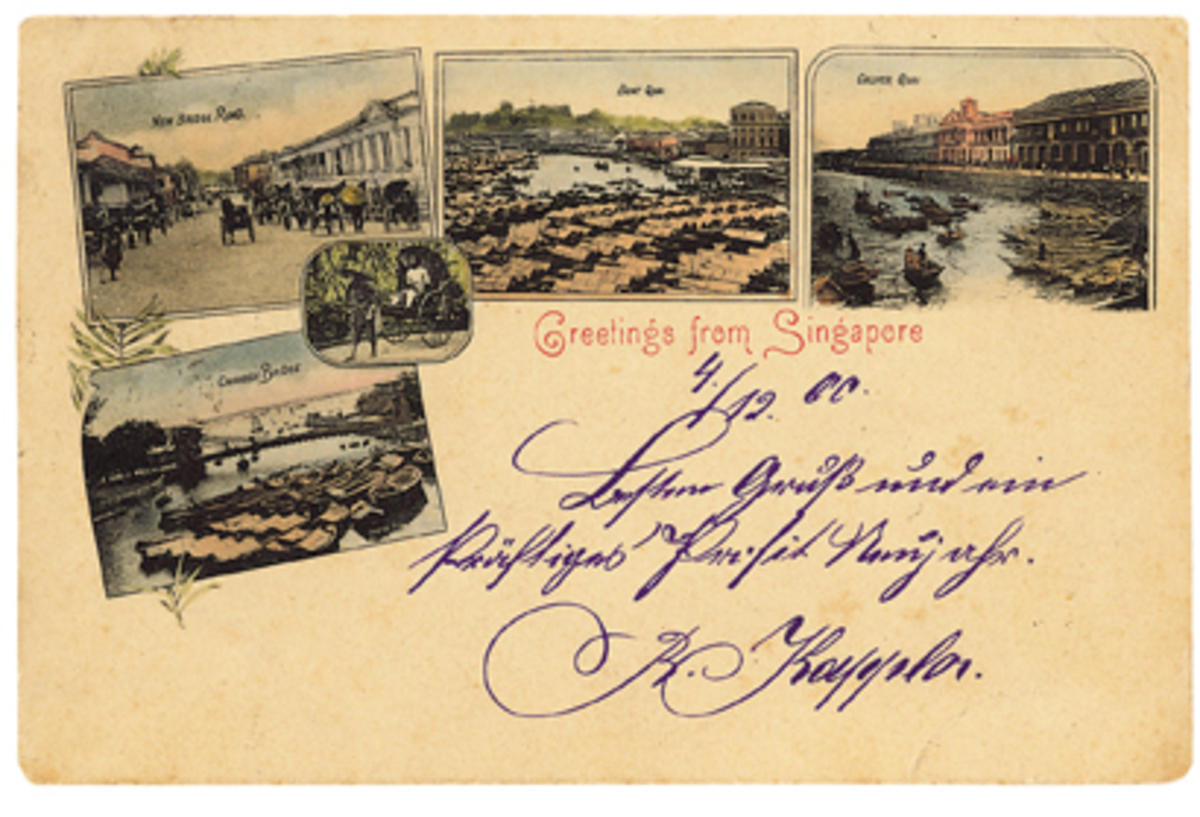 New Bridge Road.
Boat Quai
Collyer Quai
Cavanagh Bridge
Greetings from Singapore
4./12. 00.
Besten Gruß und ein
kräftiges Prosit Neujahr.
R. Kappeler.